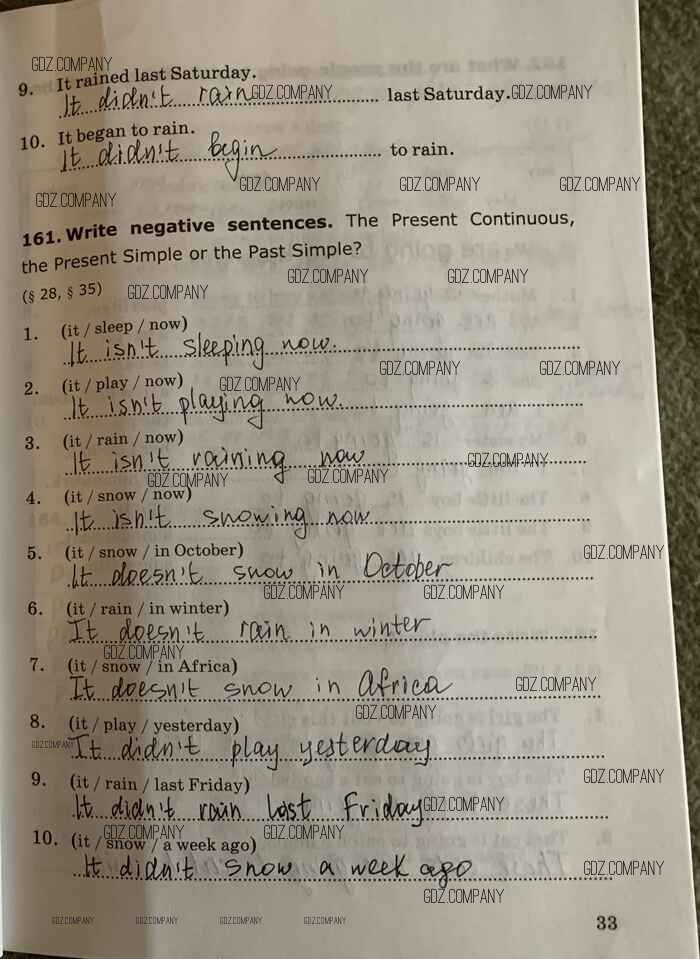 GDZ.COMPANY
9. It rained last Saturday.
It didn't rain GDZ.COMPANY last Saturday. GDZ.COMPANY
10. It began to rain.
It didn't begin to rain.
GDZ.COMPANY GDZ.COMPANY GDZ.COMPANY
GDZ.COMPANY
161. Write negative sentences. The Present Continuous,
the Present Simple or the Past Simple?
GDZ.COMPANY GDZ.COMPANY
(§ 28, § 35) GDZ.COMPANY
1. (it / sleep / now)
It isn't sleeping now.
GDZ.COMPANY GDZ.COMPANY
2. (it / play / now) GDZ.COMPANY
It isn't playing now.
3. (it / rain / now)
It isn't raining now GDZ.COMPANY
GDZ.COMPANY GDZ.COMPANY
4. (it / snow / now)
It isn't snowing now
5. (it / snow / in October) GDZ.COMPANY
It doesn't snow in October
GDZ.COMPANY GDZ.COMPANY
6. (it / rain / in winter)
It doesn't rain in winter
GDZ.COMPANY
7. (it / snow / in Africa)
It doesn't snow in Africa GDZ.COMPANY
GDZ.COMPANY
8. (it / play / yesterday)
GDZ.COMPANY It didn't play yesterday
9. (it / rain / last Friday) GDZ.COMPANY
It didn't rain last Friday GDZ.COMPANY
GDZ.COMPANY GDZ.COMPANY
10. (it / snow / a week ago)
It didn't snow a week ago GDZ.COMPANY
GDZ.COMPANY
GDZ.COMPANY GDZ.COMPANY GDZ.COMPANY GDZ.COMPANY
33